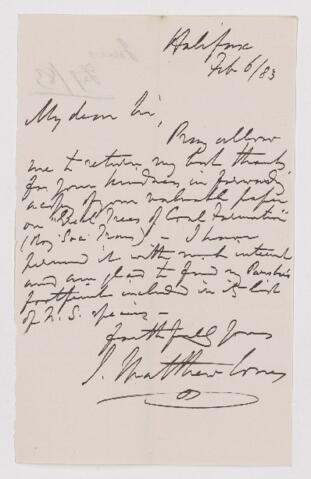 Halifax
Feb 6/83
My dear Sir,
Pray allow
me to return my best thanks
for your kindness in forwarding
a copy of your valuable paper
on "Erect Trees of Coal Formation"
(Roy. Soc. Trans) - I have
perused it with much interest
and am glad to find my
footprint included in its list
of N. S. species -
faithfully yours
J. Matthew Jones